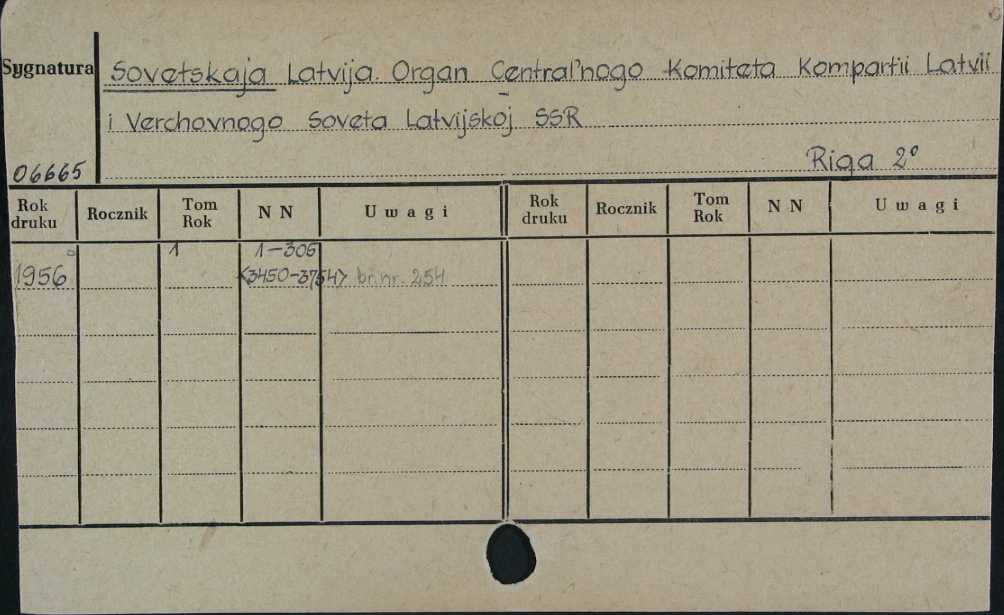 Sygnatura
Sovetskaja Latvija. Organ Central'nogo Komiteta Kompartii Latvii
i Verchovnogo Soveta Latvijskoj SSR
06665
Riga 2°
Rok druku Rocznik Tom Rok N N Uwagi Rok druku Rocznik Tom Rok N N Uwagi
1 1-305
1956 <3450-3754> br. nr. 254